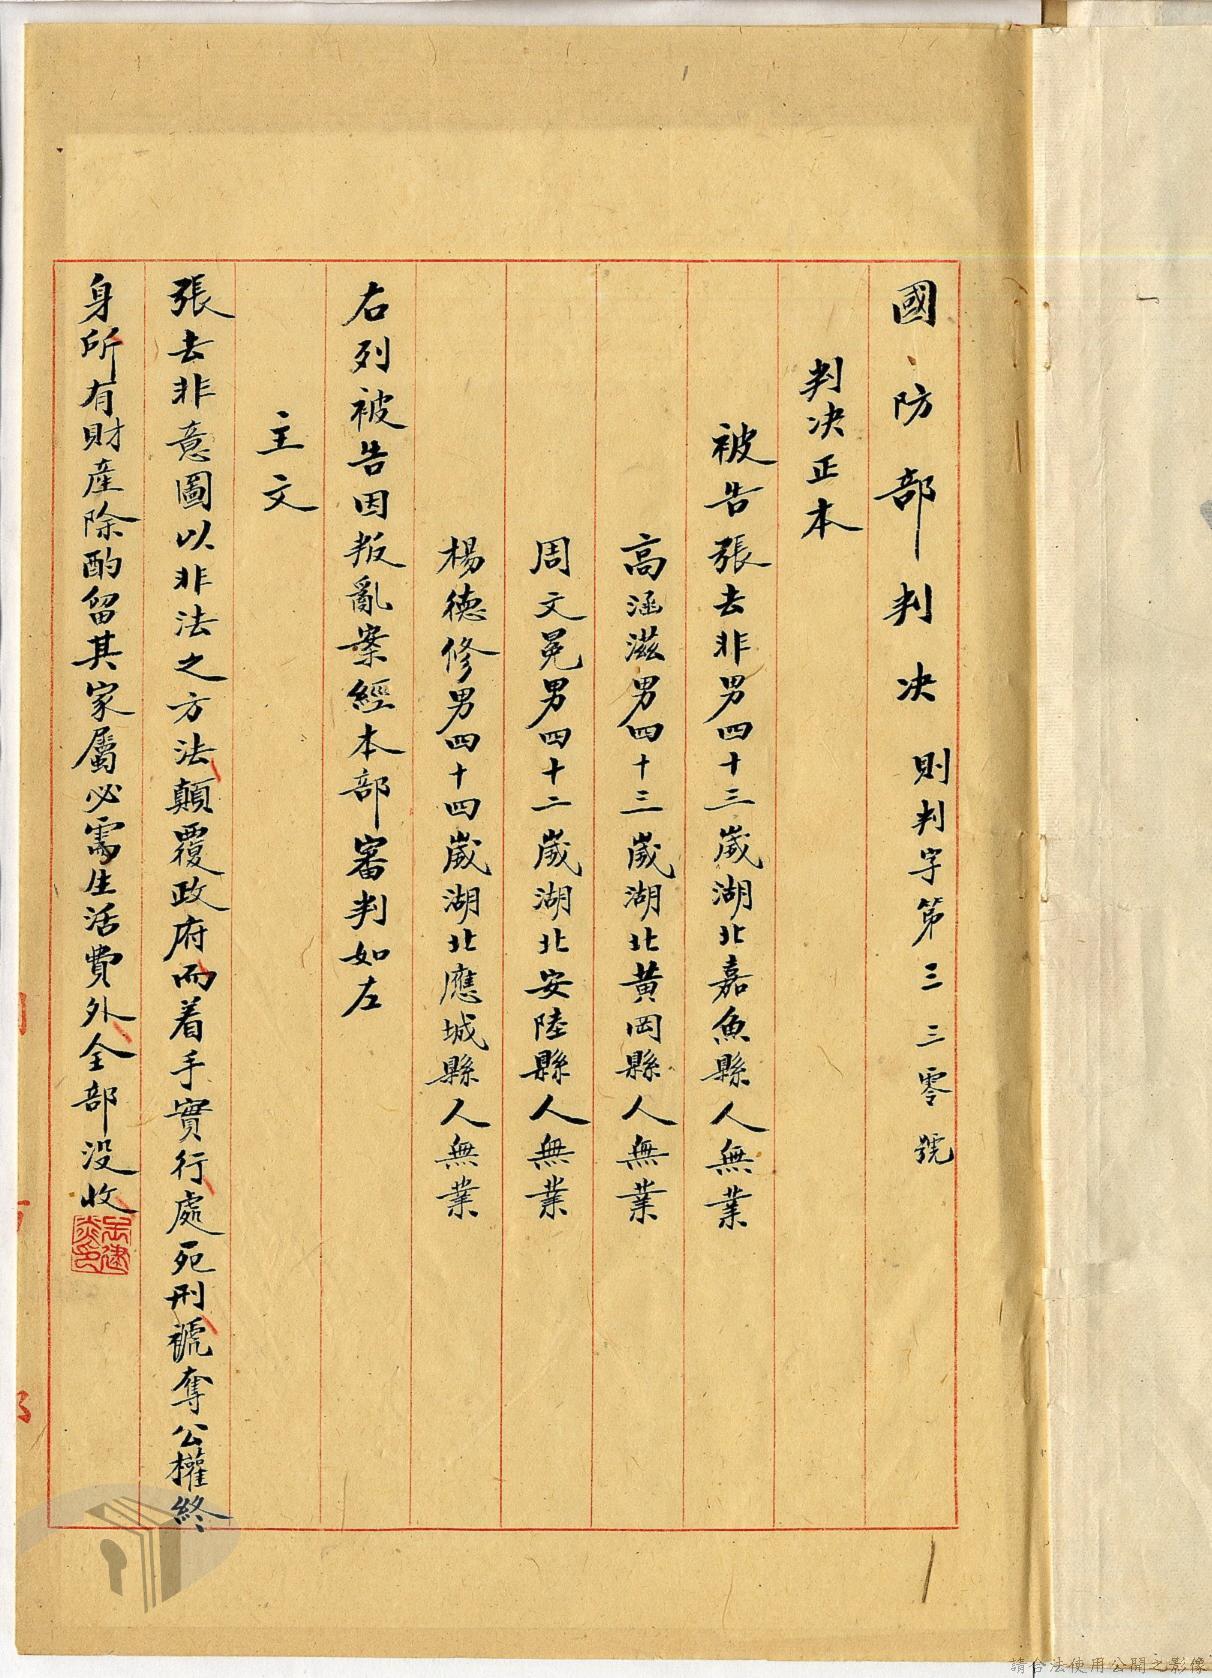 國防部判決 則判字第三三零號
判決正本
被告張去非男四十三歲湖北嘉魚縣人無業
高涵滋男四十三歲湖北黃岡縣人無業
周文冕男四十二歲湖北安陸縣人無業
楊德修男四十四歲湖北應城縣人無業
右列被告因叛亂案經本部審判如左
主文
張去非意圖以非法之方法顛覆政府而着手實行處死刑褫奪公權終
身所有財產除酌留其家屬必需生活費外全部没收
請合法使用公開之影像